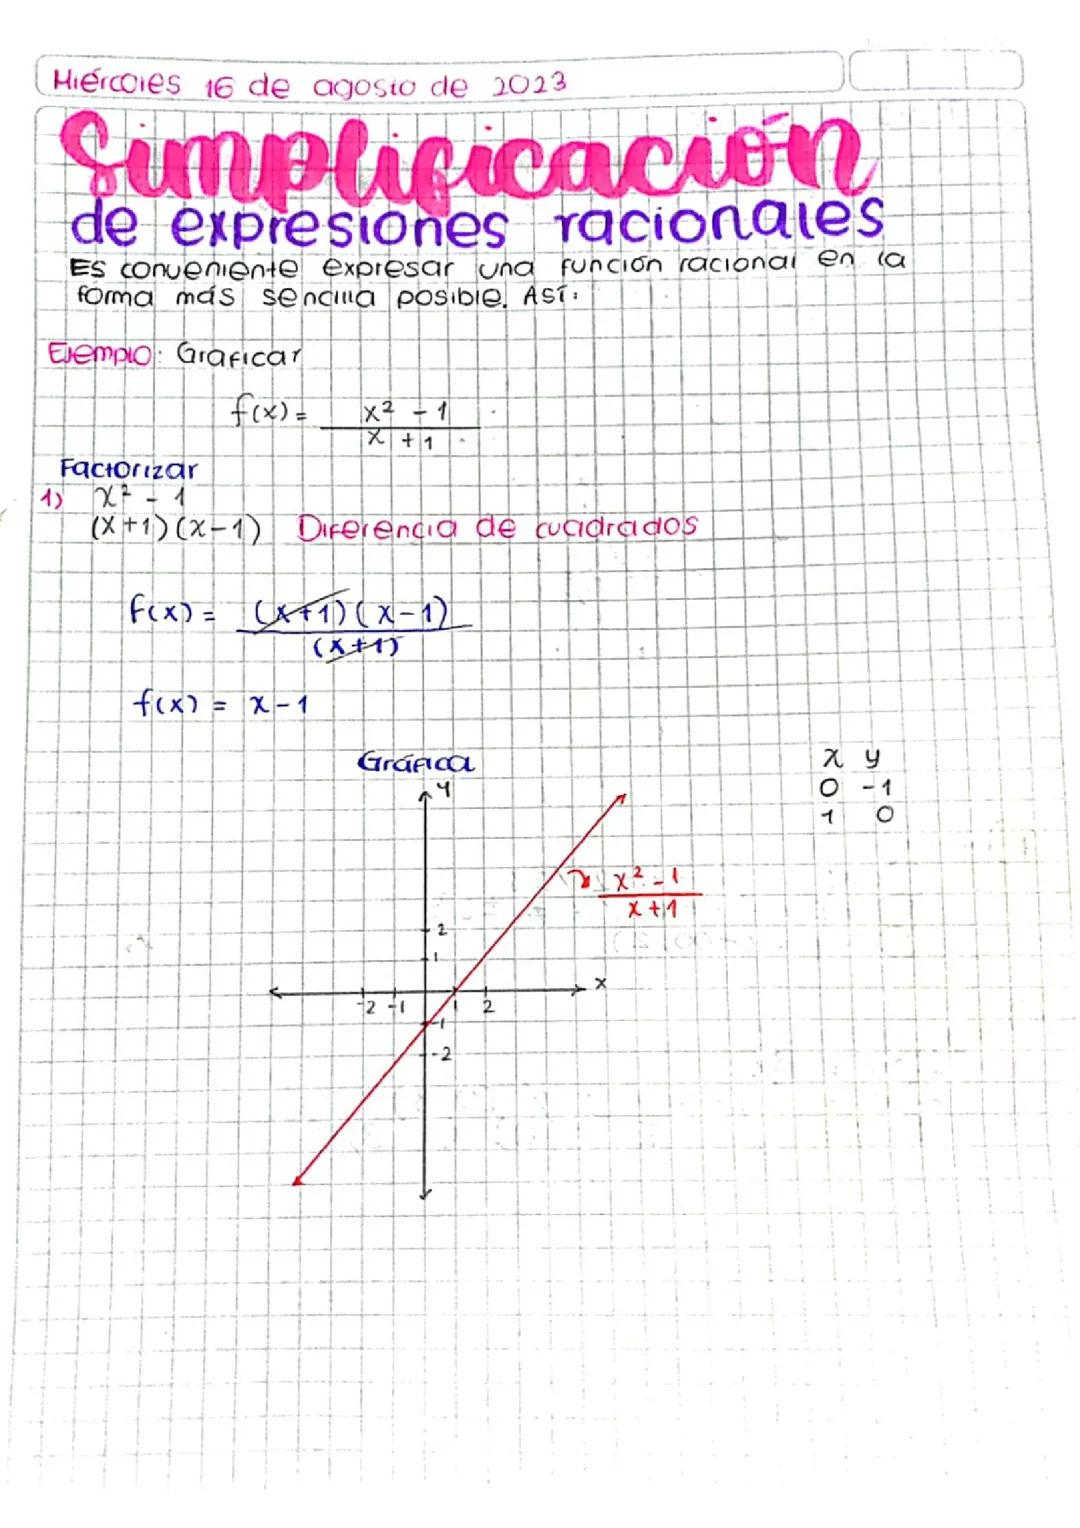 Miércoles 16 de agosto de 2023
Simplificación
de expresiones racionales
Es conveniente expresar una función racional en la
forma más sencilla posible. Así:
Ejemplo: Graficar
f(x) = x² - 1
x + 1
Factorizar
1) x² - 1
(x+1)(x-1) Diferencia de cuadrados
f(x) = (x+1)(x-1)
(x+1)
f(x) = x-1
Gráfica
x y
0 -1
1 0
y
x² - 1
x + 1
2
1
x
-2 -1 1 2
-1
-2